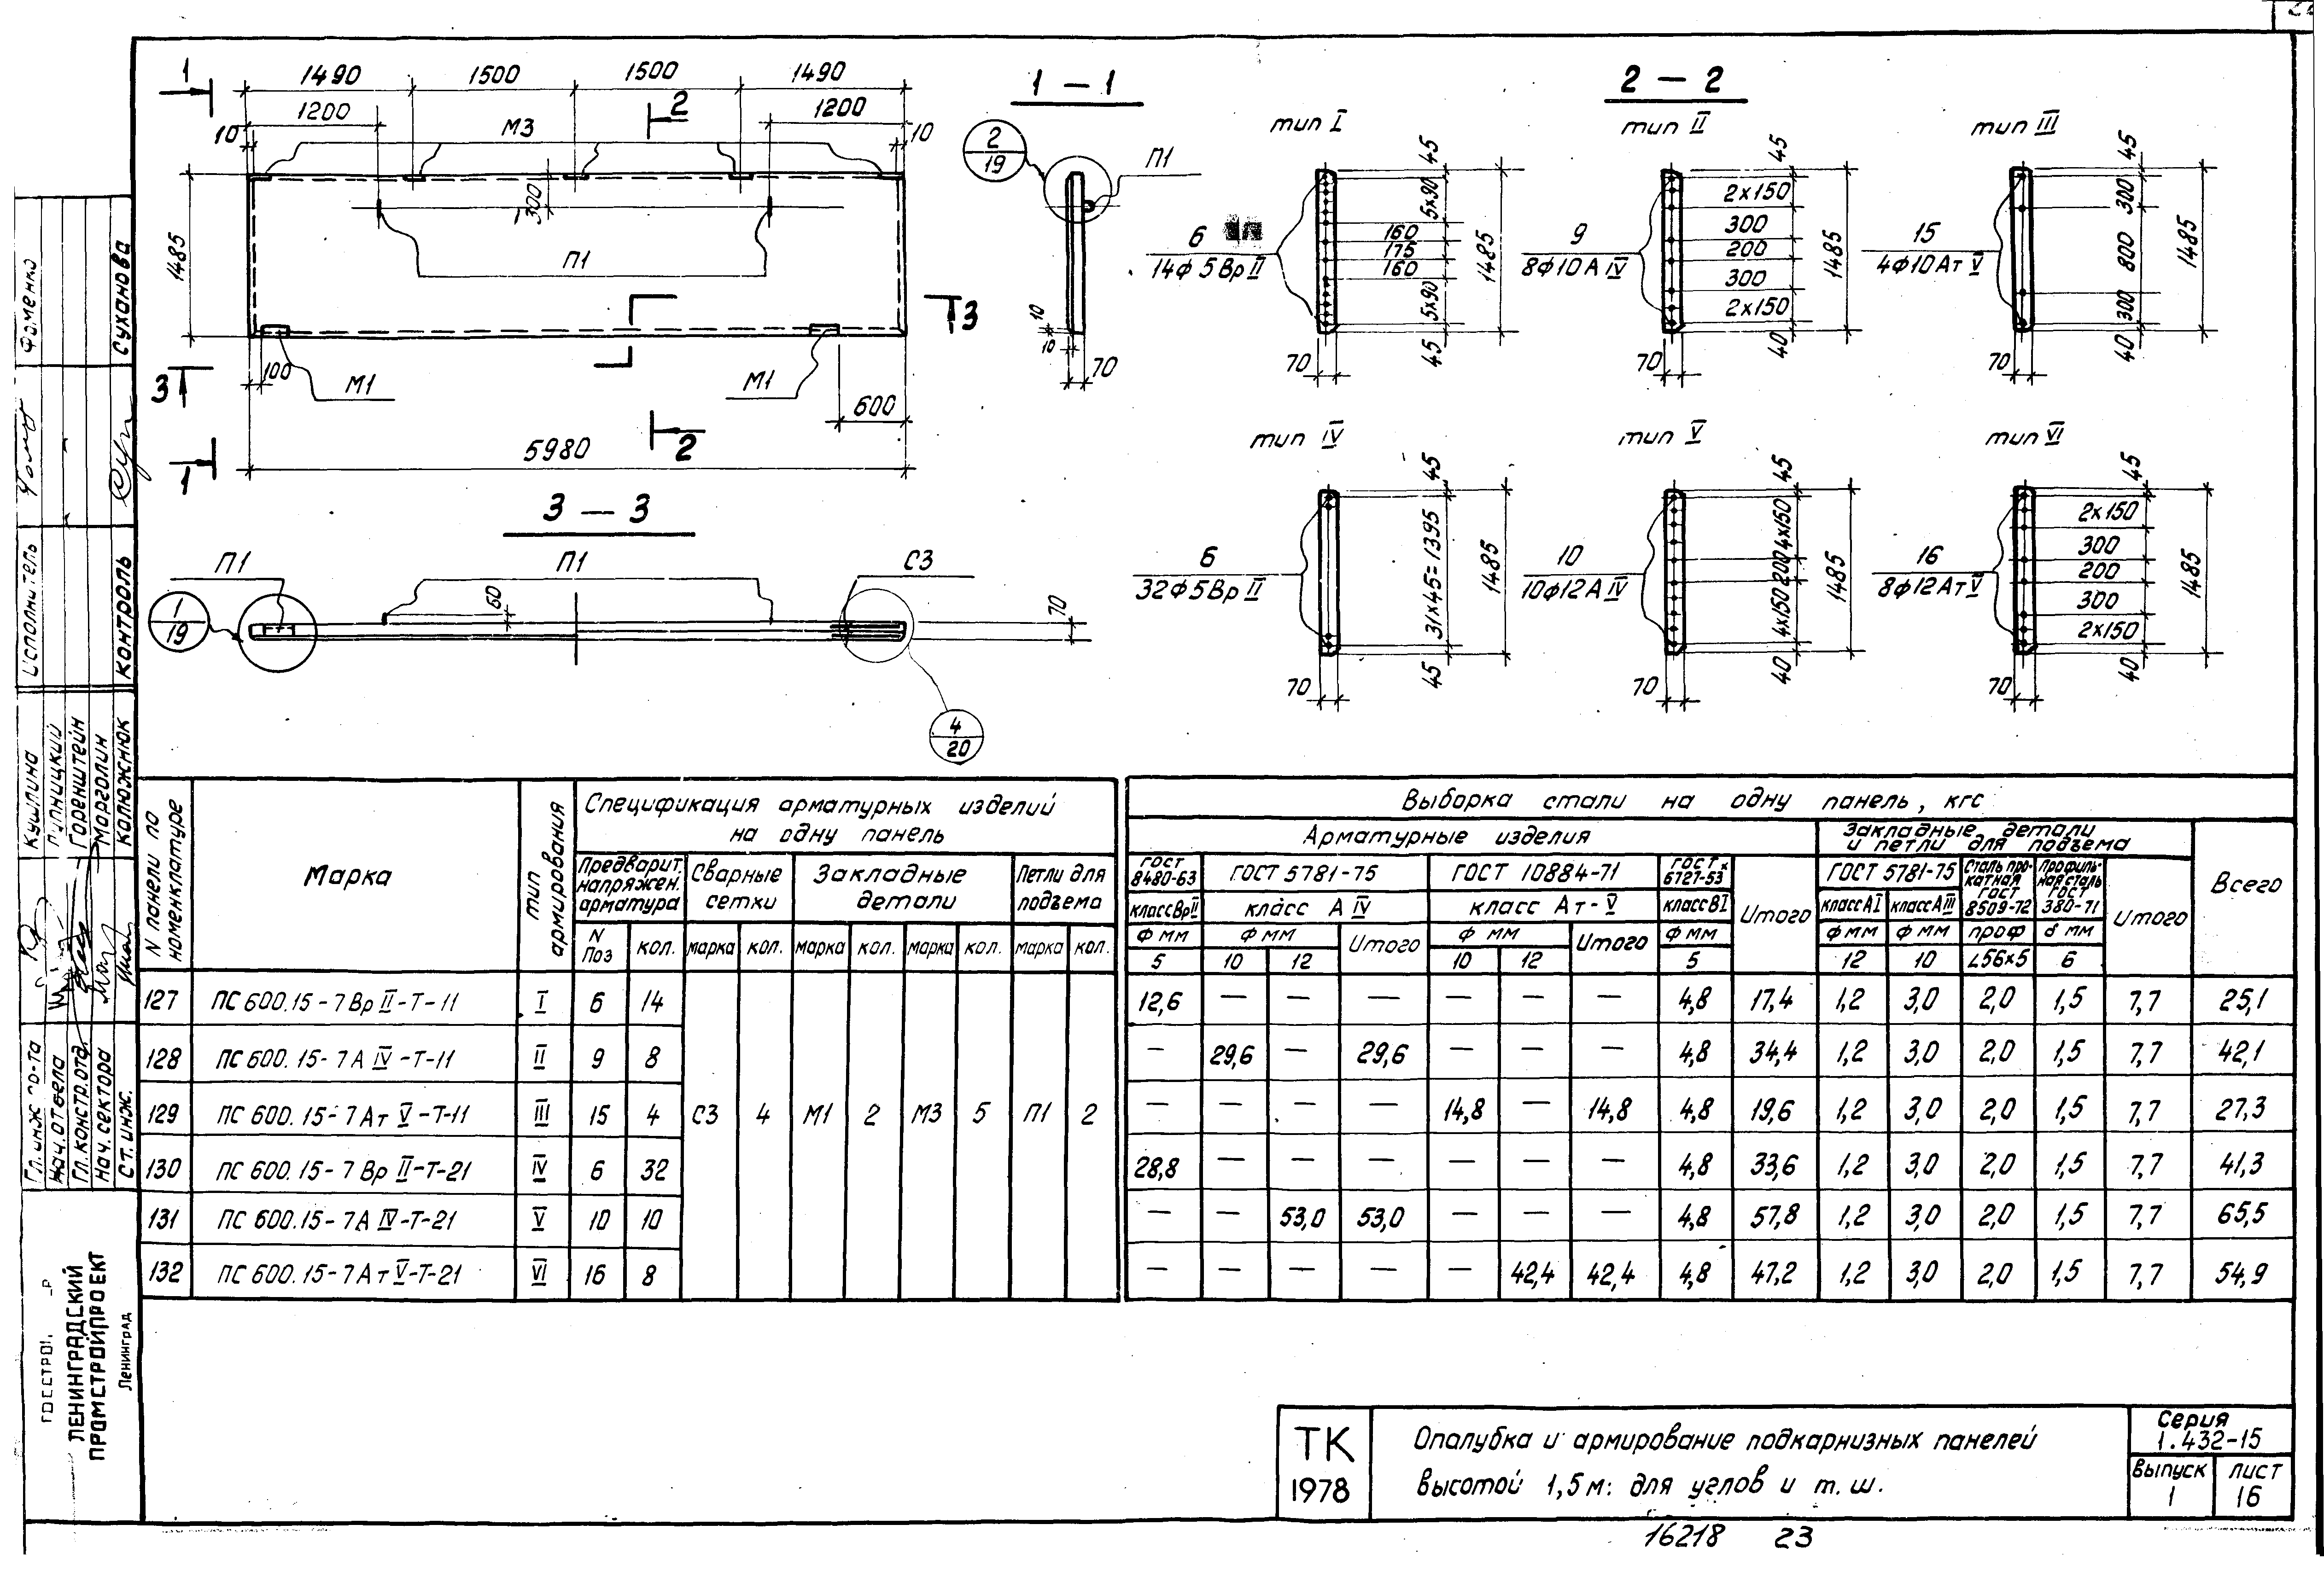 1490 1500 1500 1490
1200 1200
10 М3 10
1 2
300
1485
П1
3 3
100 М1 М1
600
5980
1 2
1 – 1
2
19
П1
10
10 70
2 – 2
тип I
6
14ф5ВрII
45
5х90
160
175
160
5х90
45
1485
70
тип II
9
8ф10АIV
45
2х150
300
200
300
2х150
40
1485
70
тип III
15
4ф10АтV
45
300
800
300
40
1485
70
3 – 3
П1 П1 С3
1
19
60
70
4
20
тип IV
6
32ф5ВрII
45
31х45=1395
45
1485
70
тип V
10
10ф12АIV
45
4х150
200
4х150
40
1485
70
тип VI
16
8ф12АтV
45
2х150
300
200
300
2х150
40
1485
70
N панели по номенклатуре
Марка
тип армирования
Спецификация арматурных изделий
на одну панель
Предварит. напряжен. арматура
Сварные сетки
Закладные детали
Петли для подъема
N Поз кол. марка кол. марка кол. марка кол. марка кол.
127 ПС 600.15-7ВрII-Т-11 I 6 14
128 ПС 600.15-7АIV-Т-11 II 9 8
129 ПС 600.15-7АтV-Т-11 III 15 4 С3 4 М1 2 М3 5 П1 2
130 ПС 600.15-7ВрII-Т-21 IV 6 32
131 ПС 600.15-7АIV-Т-21 V 10 10
132 ПС 600.15-7АтV-Т-21 VI 16 8
Выборка стали на одну панель, кгс
Арматурные изделия
Закладные детали
и петли для подъема
Всего
ГОСТ 8480-63
ГОСТ 5781-75
ГОСТ 10884-71
ГОСТ 6727-53х
Итого
ГОСТ 5781-75
Сталь прокатная ГОСТ 8509-72
Профильная сталь ГОСТ 380-71
Итого
класс ВрII класс АIV класс Ат-V класс ВI класс АI класс АIII
ф мм ф мм Итого ф мм Итого ф мм ф мм ф мм проф δ мм
5 10 12 10 12 5 12 10 L56х5 6
12,6 — — — — — — 4,8 17,4 1,2 3,0 2,0 1,5 7,7 25,1
— 29,6 — 29,6 — — — 4,8 34,4 1,2 3,0 2,0 1,5 7,7 42,1
— — — — 14,8 — 14,8 4,8 19,6 1,2 3,0 2,0 1,5 7,7 27,3
28,8 — — — — — — 4,8 33,6 1,2 3,0 2,0 1,5 7,7 41,3
— — 53,0 53,0 — — — 4,8 57,8 1,2 3,0 2,0 1,5 7,7 65,5
— — — — — 42,4 42,4 4,8 47,2 1,2 3,0 2,0 1,5 7,7 54,9
Фоменко
Суханова
Исполнитель
Контроль
Кушлина
Горенштейн
Морголин
Калюжнюк
Нач. отдела
Гл. констр. отд.
Нач. сектора
Ст. инж.
ЛЕНИНГРАДСКИЙ
ПРОМСТРОЙПРОЕКТ
Ленинград
ТК
1978
Опалубка и армирование подкарнизных панелей
высотой 1,5м: для углов и т.ш.
Серия
1.432-15
Выпуск
1
Лист
16
16218 23